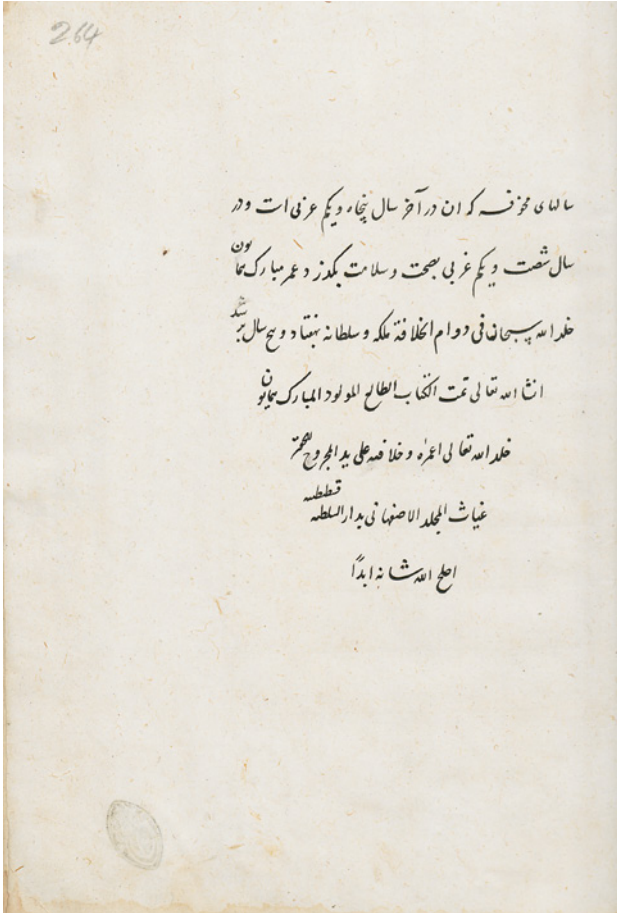 264
سالهای مخوفه که ان در آخر سال پنجاه ویکم عربی است ودر
سال شصت ویکم عربی بصحت وسلامت بکذرد عمر مبارک همایون
خلد الله سبحانه فی دوام الخلافة ملکه وسلطانه بهفتاد وپنج سال برسد
انشا الله تعالی تمت الکتاب الطالع المولود المبارک همایون
خلد الله تعالی عمره وخلافته علی ید
غیاث المجلد الاصفهانی بدار السلطنه
اصلح الله شانه ابدًا